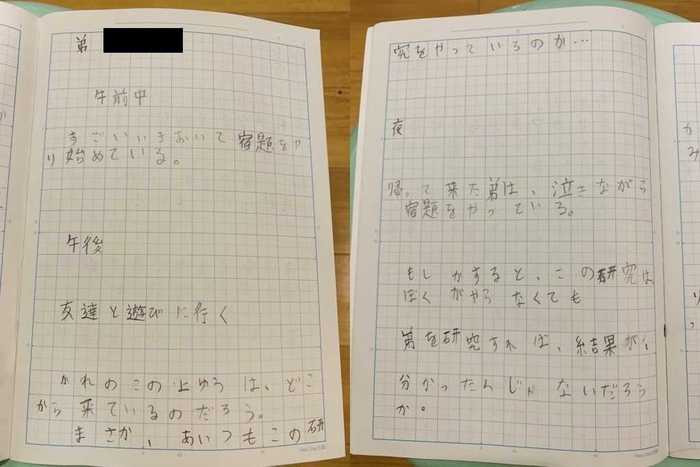 弟
午前中
すごいいきおいで宿題をや
り始めている。
午後
友達と遊びに行く
かれのこの上ゆうは、どこ
から来ているのだろう。
まさか、あいつもこの研
究をやっているのか…
夜
帰って来た弟は、泣きながら
宿題をやっている。
もしかすると、この研究は
ぼくがやらなくても
弟を研究すれば、結果が、
分かったんじゃないだろう
か。